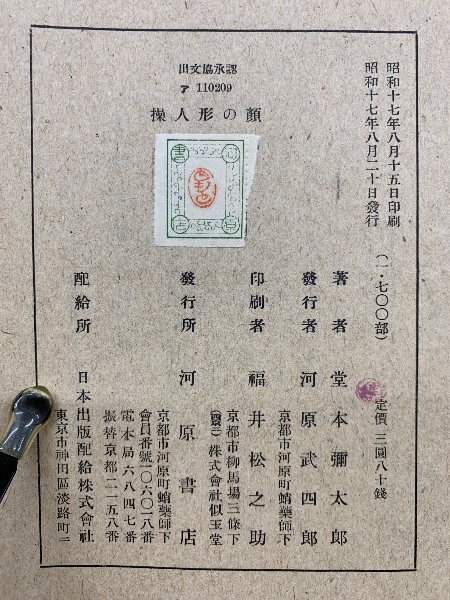 昭和十七年八月十五日印刷
昭和十七年八月二十日發行
(一・七〇〇部)
定價 三圓八十錢
出文協承認
ア 110209
操人形の顏
河
書
原
店
著者 堂本彌太郎
發行者 河原武四郎
京都市河原町蛸藥師下
印刷者 福井松之助
京都市柳馬場三條下
株式會社似玉堂
發行所 河原書店
京都市河原町蛸藥師下
會員番號一〇六〇一八番
電本局六八四七番
振替京都二一一五八番
配給所 日本出版配給株式會社
東京市神田區淡路町二